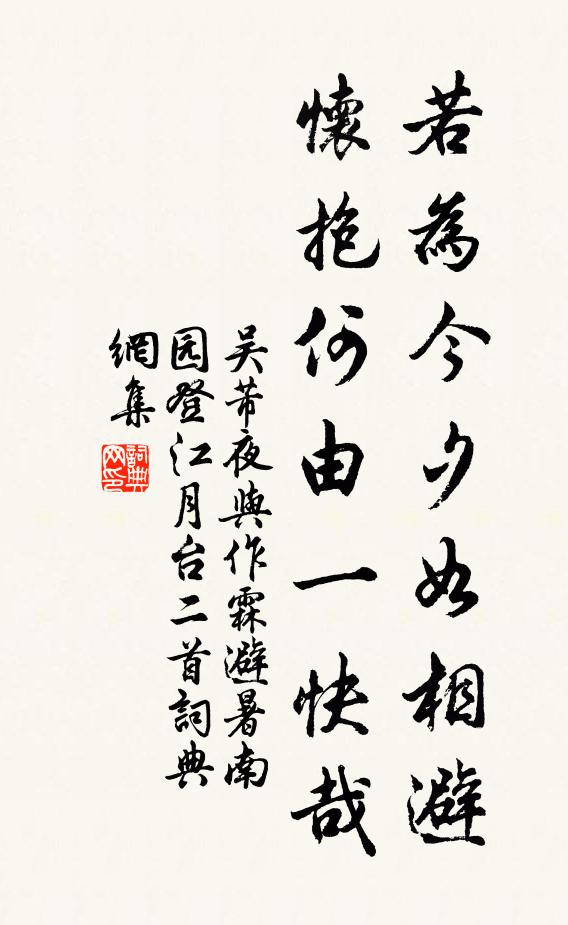 若為今夕如相避
懷抱何由一快哉
吴芾夜與作霖避暑南
园登江月台二首詞典
網集
詞典
网印